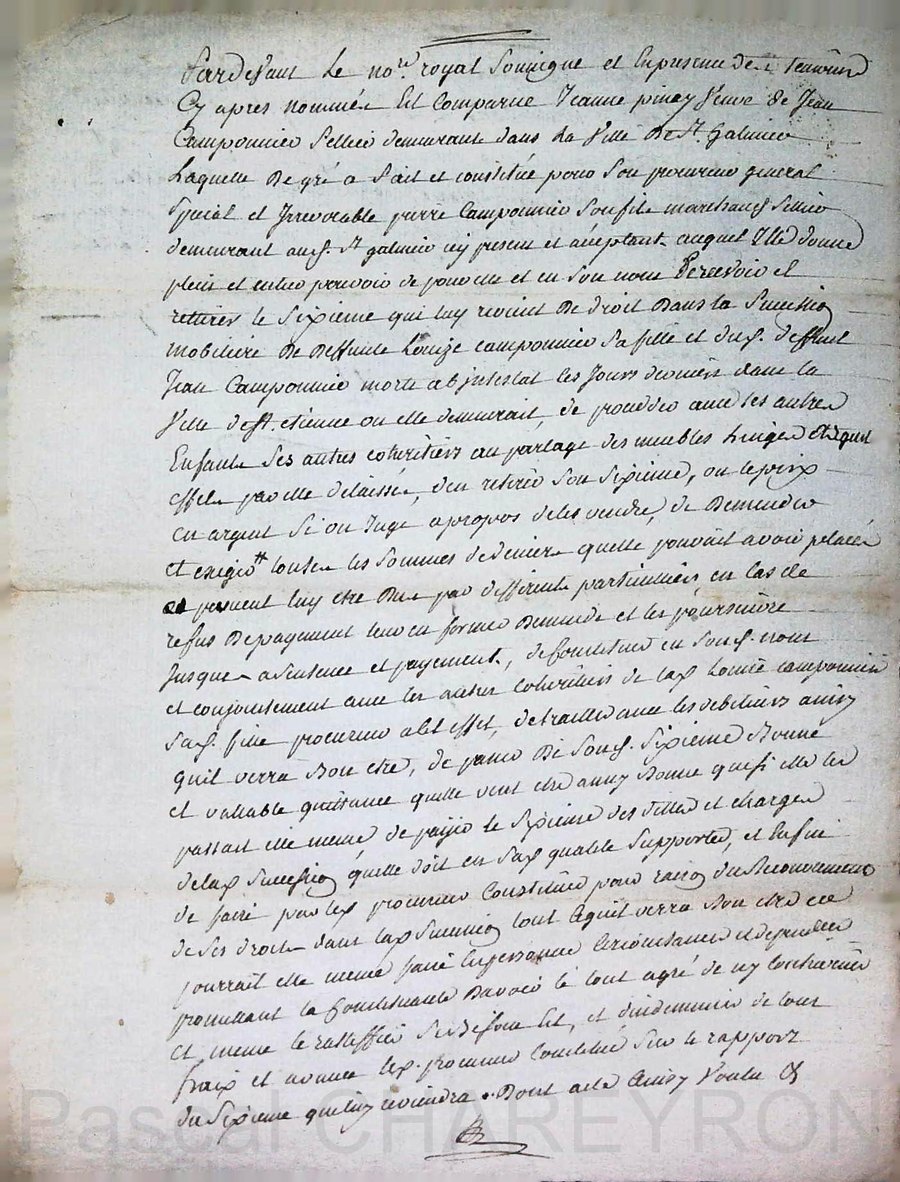 Pardevant Le no.re royal Soussigné et En presence des temoins
Cy apres nommés Est Comparue Jeanne pinay Veuve de Jean
Camponnier Sellier demeurant dans La Ville De St Galmier
Laquelle De gré a fait et constitué pour Son procureur general
Special et Irrevocable pierre Camponnier Son fils marchand Sellier
demeurant aud. St galmier icy present et acceptant auquel Elle donne
plein et entier pouvoir de pour elle et en Son nom Percevoir et
retirer le Sixieme qui luy revient De droit Dans la Succession
mobiliere De Deffunte Louize camponnier Sa fille et dud. deffunt
Jean Camponnier morte abjntestat les Jours derniers dans la
Ville de St. etienne ou elle demeurait, de proceder avec les autres
Enfants Ses autres coheritiers au partage des meubles Linges et
effets par elle delaissés, d'en retirer Son Sixieme, ou le prix
en argent Si on Juge apropos de les vendre, de Demander
et exiger toutes les Sommes de deniers quelle pouvait avoir
peuvent luy etre Dus par differents particuliers en Cas de
refus De payement en former Demande et les poursuivre
Jusques a Sentence et payement, de Constituer en Sond. nom
et conjointement avec les autres Coheritiers de lad. Louise camponnier
Sad. fille procureur a cet effet, de traitter avec les debiteurs ainsy
quil verra Bon etre, de passer De Sond. Sixieme Bonne
et vallable quittance quelle veut etre aussy Bonne que Si elle les
passait elle meme, de payer le Sixieme des dettes et charges
de lad. Succession quelle doit en Sad. qualité Supporter, et Enfin
de faire par led. procureur Constitué pour raison du Recouvrement
de Ses droits dans lad. Succession tout Cequil verra Bon etre et
pourrait elle meme faire En personne Circonstances et dependances
promettant la Constituante D'avoir le tout agré de ny Contrevenir
et meme le rattiffier Si Besoin Est, et d'indemniser de tous
fraix et avances led. procureur Constitué Sur le rapport
du Sixieme qui luy reviendra. Dont acte Ainsy Voulu &
Pascal CHAREYRON